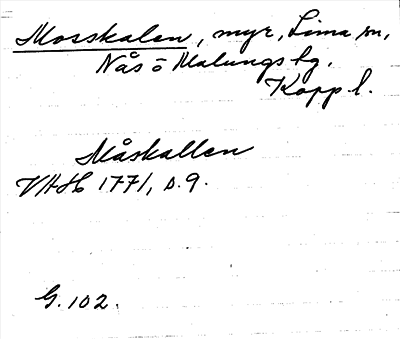 Mosskalen, myr, Lima sn,
Nås o Malungs tg,
Kopp l.
Måskallen
VHAH 1771, s. 9.
G. 102.